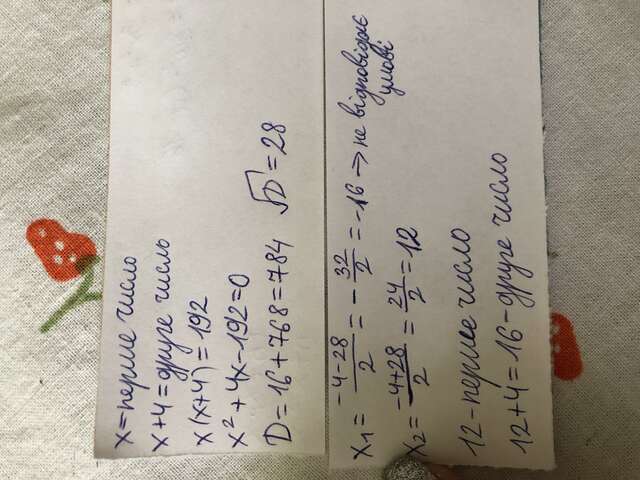 x = перше число
x+4 = друге число
x(x+4) = 192
x² + 4x - 192 = 0
D = 16 + 768 = 784 √D = 28
x₁ = (-4-28)/2 = -32/2 = -16 → не відповідає
умові
x₂ = (-4+28)/2 = 24/2 = 12
12 - перше число
12+4 = 16 - друге число